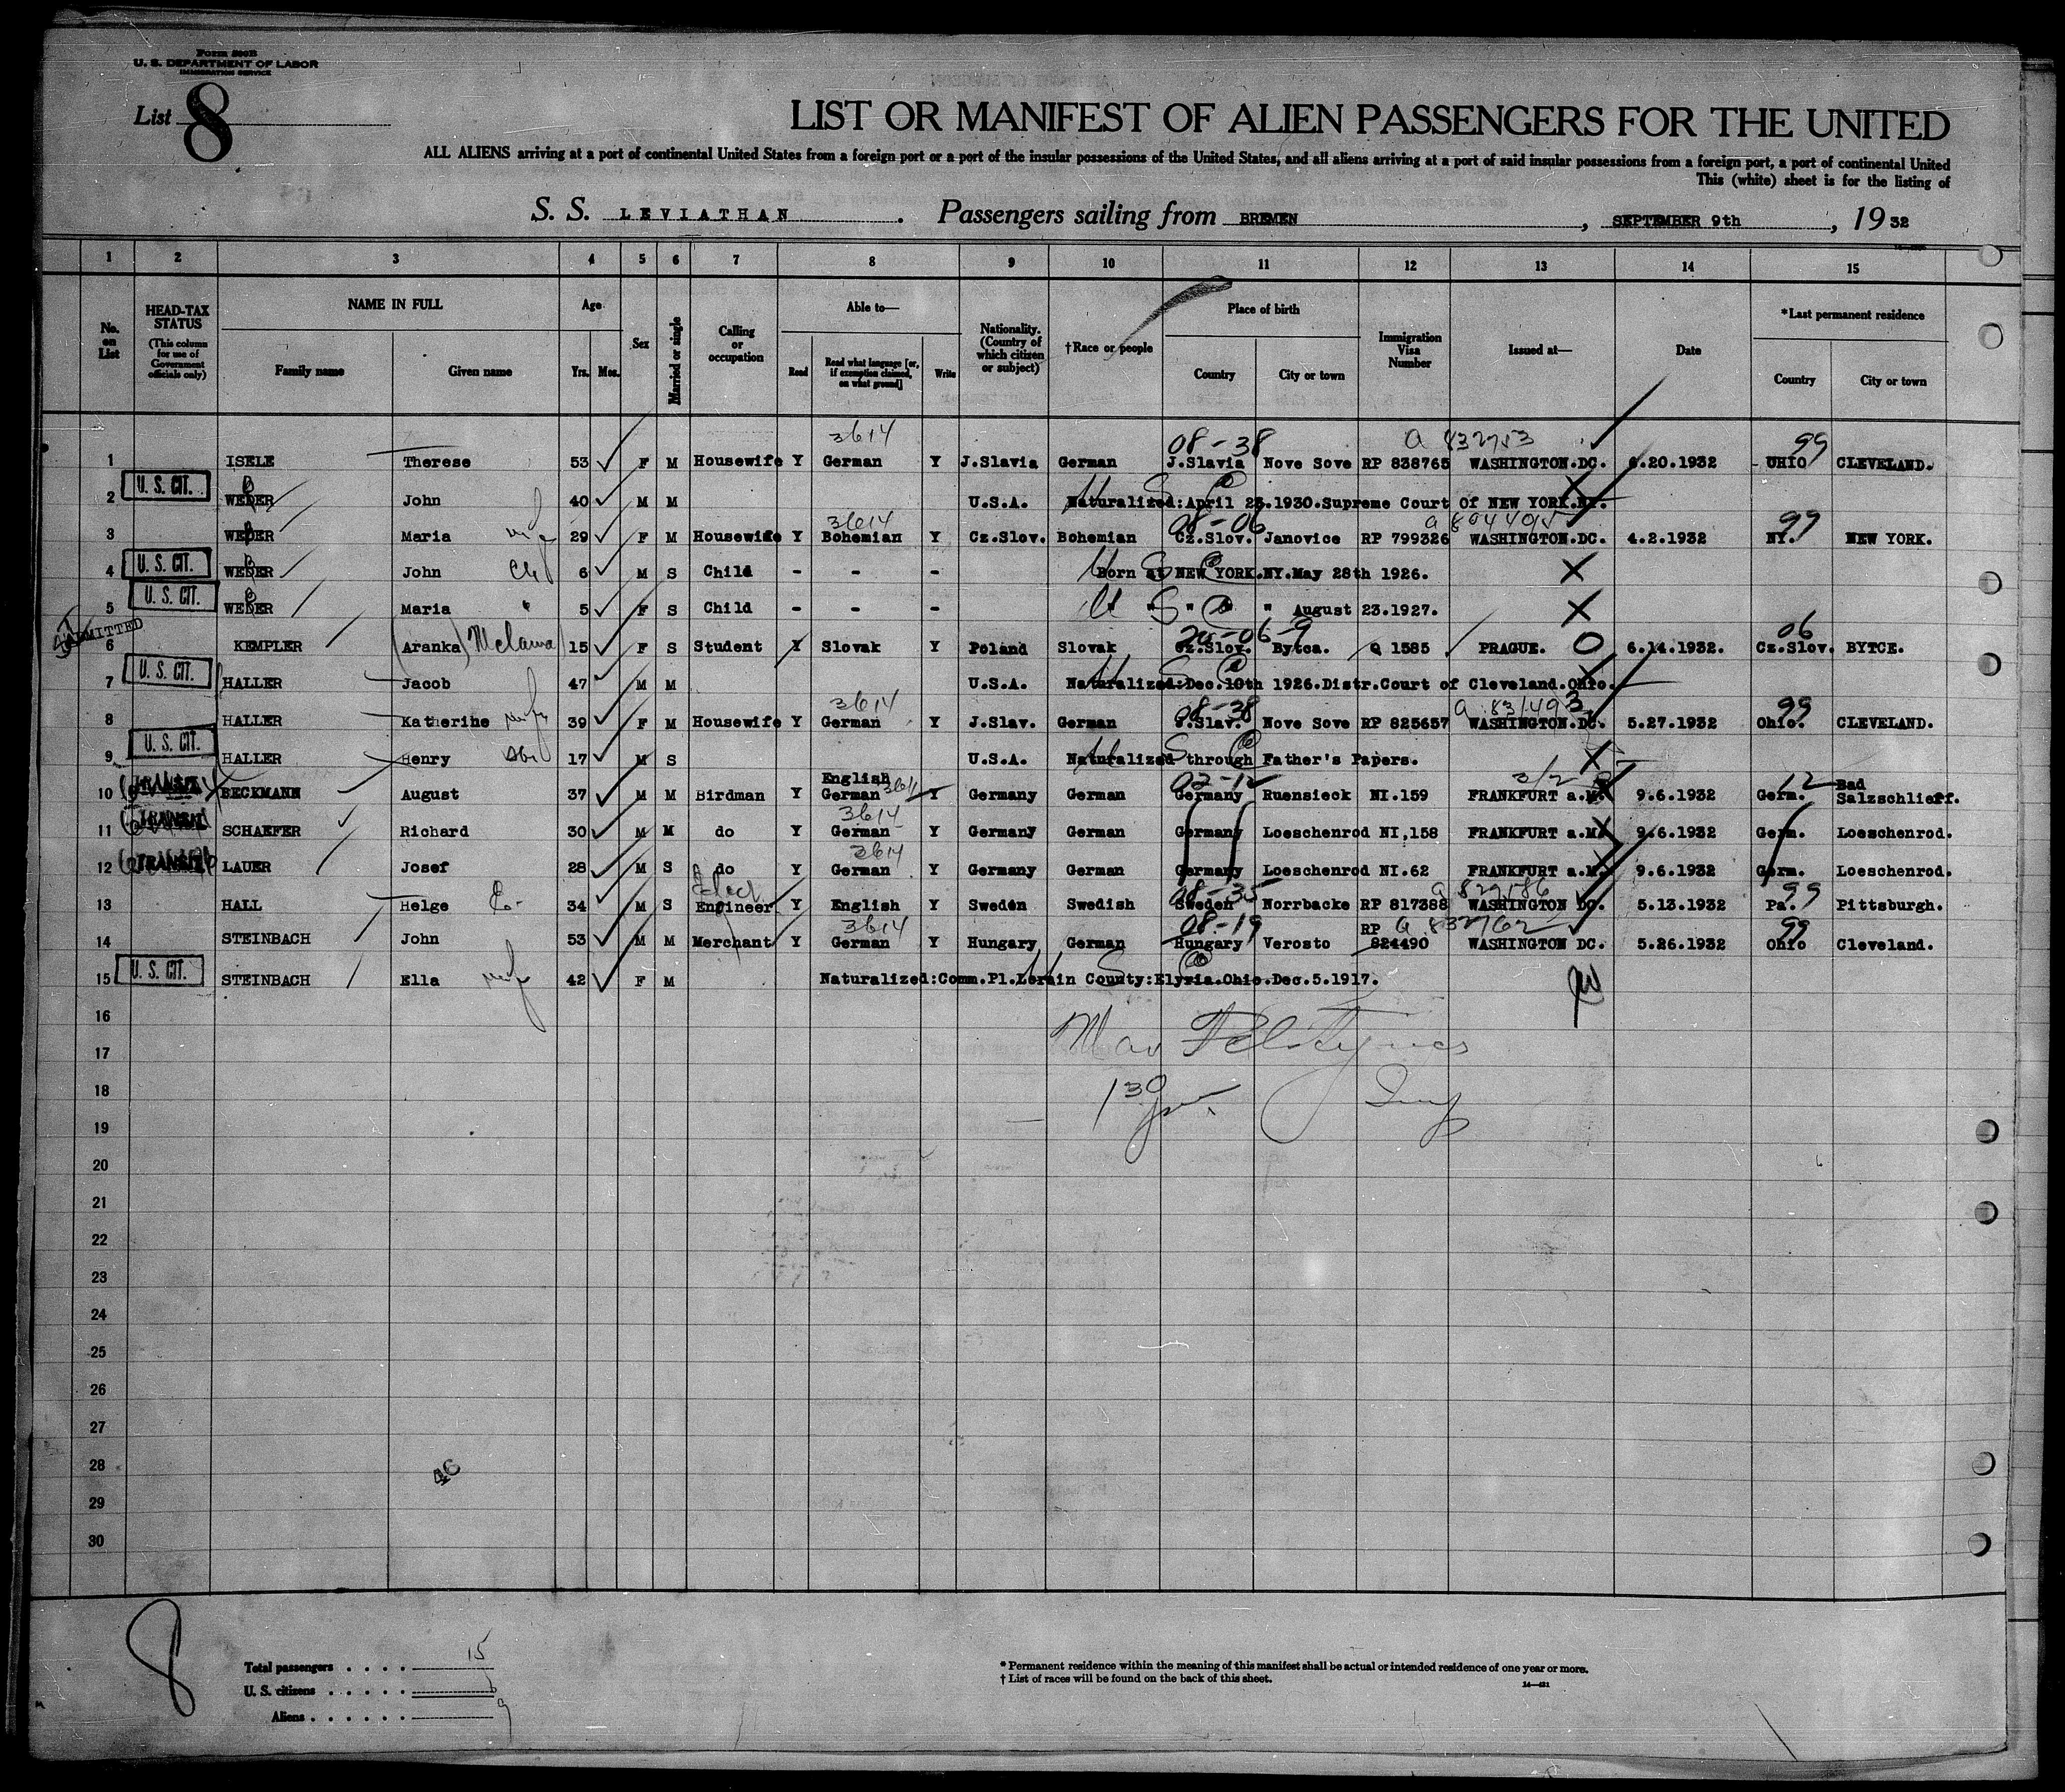 Form 500B
U. S. DEPARTMENT OF LABOR
IMMIGRATION SERVICE
List 8
LIST OR MANIFEST OF ALIEN PASSENGERS FOR THE UNITED
ALL ALIENS arriving at a port of continental United States from a foreign port or a port of the insular possessions of the United States, and all aliens arriving at a port of said insular possessions from a foreign port, a port of continental United
This (white) sheet is for the listing of
S. S. LEVIATHAN . Passengers sailing from BREMEN , SEPTEMBER 9th , 19 32
1 2 3 4 5 6 7 8 9 10 11 12 13 14 15
No. on List
HEAD-TAX STATUS (This column for use of Government officials only)
NAME IN FULL
Family name Given name
Age
Yrs. Mos.
Sex
Married or single
Calling or occupation
Able to—
Read Read what language [or, if exemption claimed, on what ground] Write
Nationality. (Country of which citizen or subject)
†Race or people
Place of birth
Country City or town
Immigration Visa Number
Issued at—
Date
*Last permanent residence
Country City or town
3614 08-38 a 832753 99
1 ISELE Therese 53 F M Housewife Y German Y J.Slavia German J.Slavia Nove Sove RP 838765 WASHINGTON.DC. 6.20.1932 OHIO CLEVELAND.
2 U. S. CIT. WEDER John 40 M M U.S.A. Naturalized:April 23.1930.Supreme Court Of NEW YORK.NY.
3614 08-06 99
3 WEDER Maria wife 29 F M Housewife Y Bohemian Y Cz.Slov. Bohemian Cz.Slov. Janovice RP 799326 WASHINGTON.DC. 4.2.1932 NY. NEW YORK.
4 U. S. CIT. WEDER John Ch 6 M S Child - - - Born at NEW YORK.NY.May 28th 1926.
5 U. S. CIT. WEDER Maria " 5 F S Child - - - " " " " " August 23.1927.
ADMITTED 06
6 KEMPLER (Aranka) 15 F S Student Y Slovak Y Poland Slovak Cz.Slov. Bytca. Q 1585 PRAGUE. O 6.14.1932. Cz.Slov. BYTCE.
7 U. S. CIT. HALLER Jacob 47 M M U.S.A. Naturalized:Dec.10th 1926.Distr.Court of Cleveland.Ohio.
3614 08-38 a 831493 99
8 HALLER Katherine wife 39 F M Housewife Y German Y J.Slav. German J.Slav. Nove Sove RP 825657 WASHINGTON.DC. 5.27.1932 Ohio. CLEVELAND.
9 U. S. CIT. HALLER Henry 17 M S U.S.A. Naturalized through Father's Papers.
10 TRANSIT BECKMANN August 37 M M Birdman Y English German 3614 Y Germany German Germany Ruensieck NI.159 FRANKFURT a.M. 9.6.1932 Germ. 12 Bad Salzschlieff.
3614
11 TRANSIT SCHAEFER Richard 30 M M do Y German Y Germany German Germany Loeschenrod NI,158 FRANKFURT a.M. 9.6.1932 Germ. Loeschenrod.
3614
12 TRANSIT LAUER Josef 28 M S do Y German Y Germany German Germany Loeschenrod NI.62 FRANKFURT a.M. 9.6.1932 Germ. Loeschenrod.
Elect 08-35 99
13 HALL Helge E. 34 M S Engineer Y English Y Sweden Swedish Sweden Norrbacke RP 817388 WASHINGTON DC. 5.13.1932 Pa. Pittsburgh.
3614 08-19 a 832762 99
14 STEINBACH John 53 M M Merchant Y German Y Hungary German Hungary Verosto RP 824490 WASHINGTON DC. 5.26.1932 Ohio Cleveland.
15 U. S. CIT. STEINBACH Ella wife 42 F M Naturalized:Comm.Pl.Lorain County:Elyria.Ohio.Dec.5.1917.
16
17
18
19
20
21
22
23
24
25
26
27
28
46
29
30
8
Total passengers . . . . 15
U. S. citizens . . . . . 6
Aliens . . . . . . 9
* Permanent residence within the meaning of this manifest shall be actual or intended residence of one year or more.
† List of races will be found on the back of this sheet.
14—421